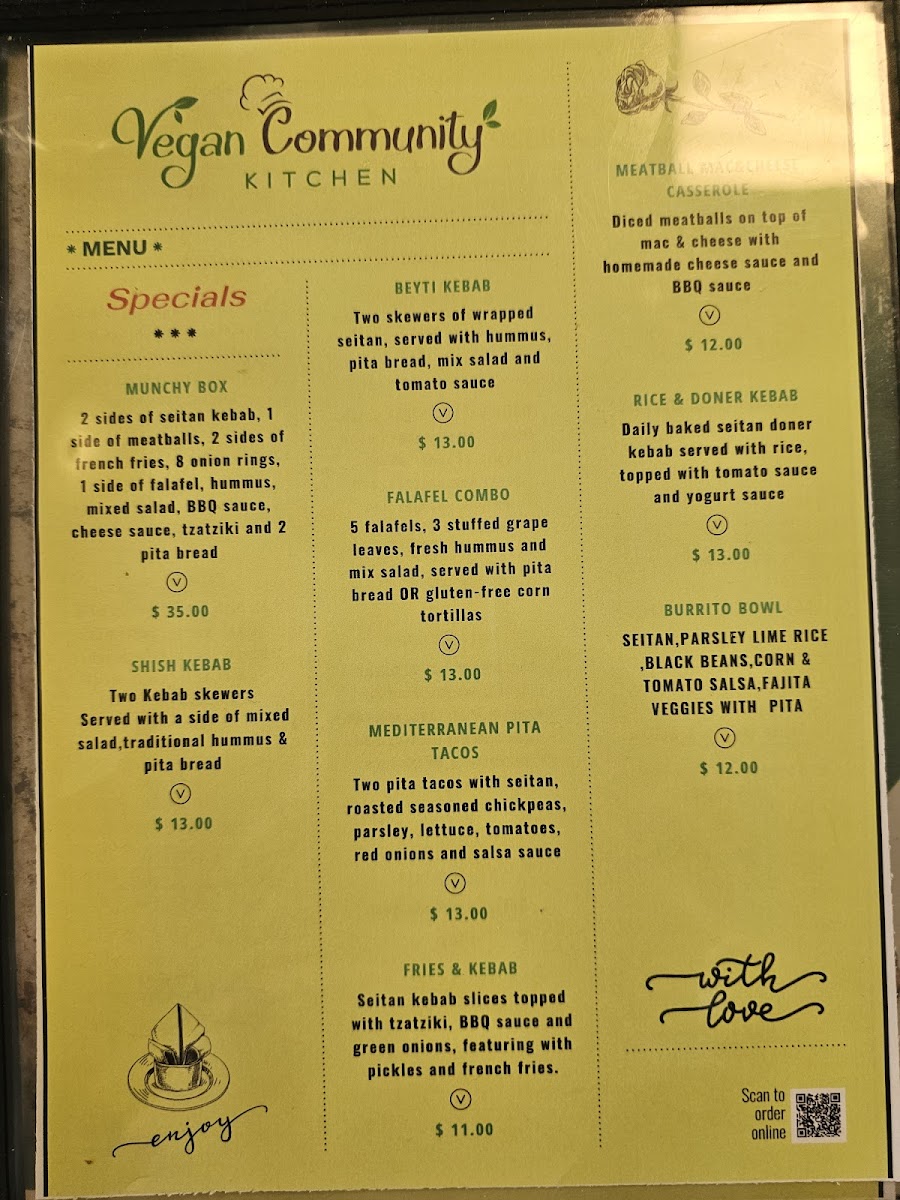 Vegan Community
KITCHEN
* MENU *
Specials
***
MUNCHY BOX
2 sides of seitan kebab, 1
side of meatballs, 2 sides of
french fries, 8 onion rings,
1 side of falafel, hummus,
mixed salad, BBQ sauce,
cheese sauce, tzatziki and 2
pita bread
V
$ 35.00
SHISH KEBAB
Two Kebab skewers
Served with a side of mixed
salad,traditional hummus &
pita bread
V
$ 13.00
enjoy
BEYTI KEBAB
Two skewers of wrapped
seitan, served with hummus,
pita bread, mix salad and
tomato sauce
V
$ 13.00
FALAFEL COMBO
5 falafels, 3 stuffed grape
leaves, fresh hummus and
mix salad, served with pita
bread OR gluten-free corn
tortillas
V
$ 13.00
MEDITERRANEAN PITA
TACOS
Two pita tacos with seitan,
roasted seasoned chickpeas,
parsley, lettuce, tomatoes,
red onions and salsa sauce
V
$ 13.00
FRIES & KEBAB
Seitan kebab slices topped
with tzatziki, BBQ sauce and
green onions, featuring with
pickles and french fries.
V
$ 11.00
MEATBALL MAC&CHEESE
CASSEROLE
Diced meatballs on top of
mac & cheese with
homemade cheese sauce and
BBQ sauce
V
$ 12.00
RICE & DONER KEBAB
Daily baked seitan doner
kebab served with rice,
topped with tomato sauce
and yogurt sauce
V
$ 13.00
BURRITO BOWL
SEITAN,PARSLEY LIME RICE
,BLACK BEANS,CORN &
TOMATO SALSA,FAJITA
VEGGIES WITH PITA
V
$ 12.00
with
love
Scan to
order
online